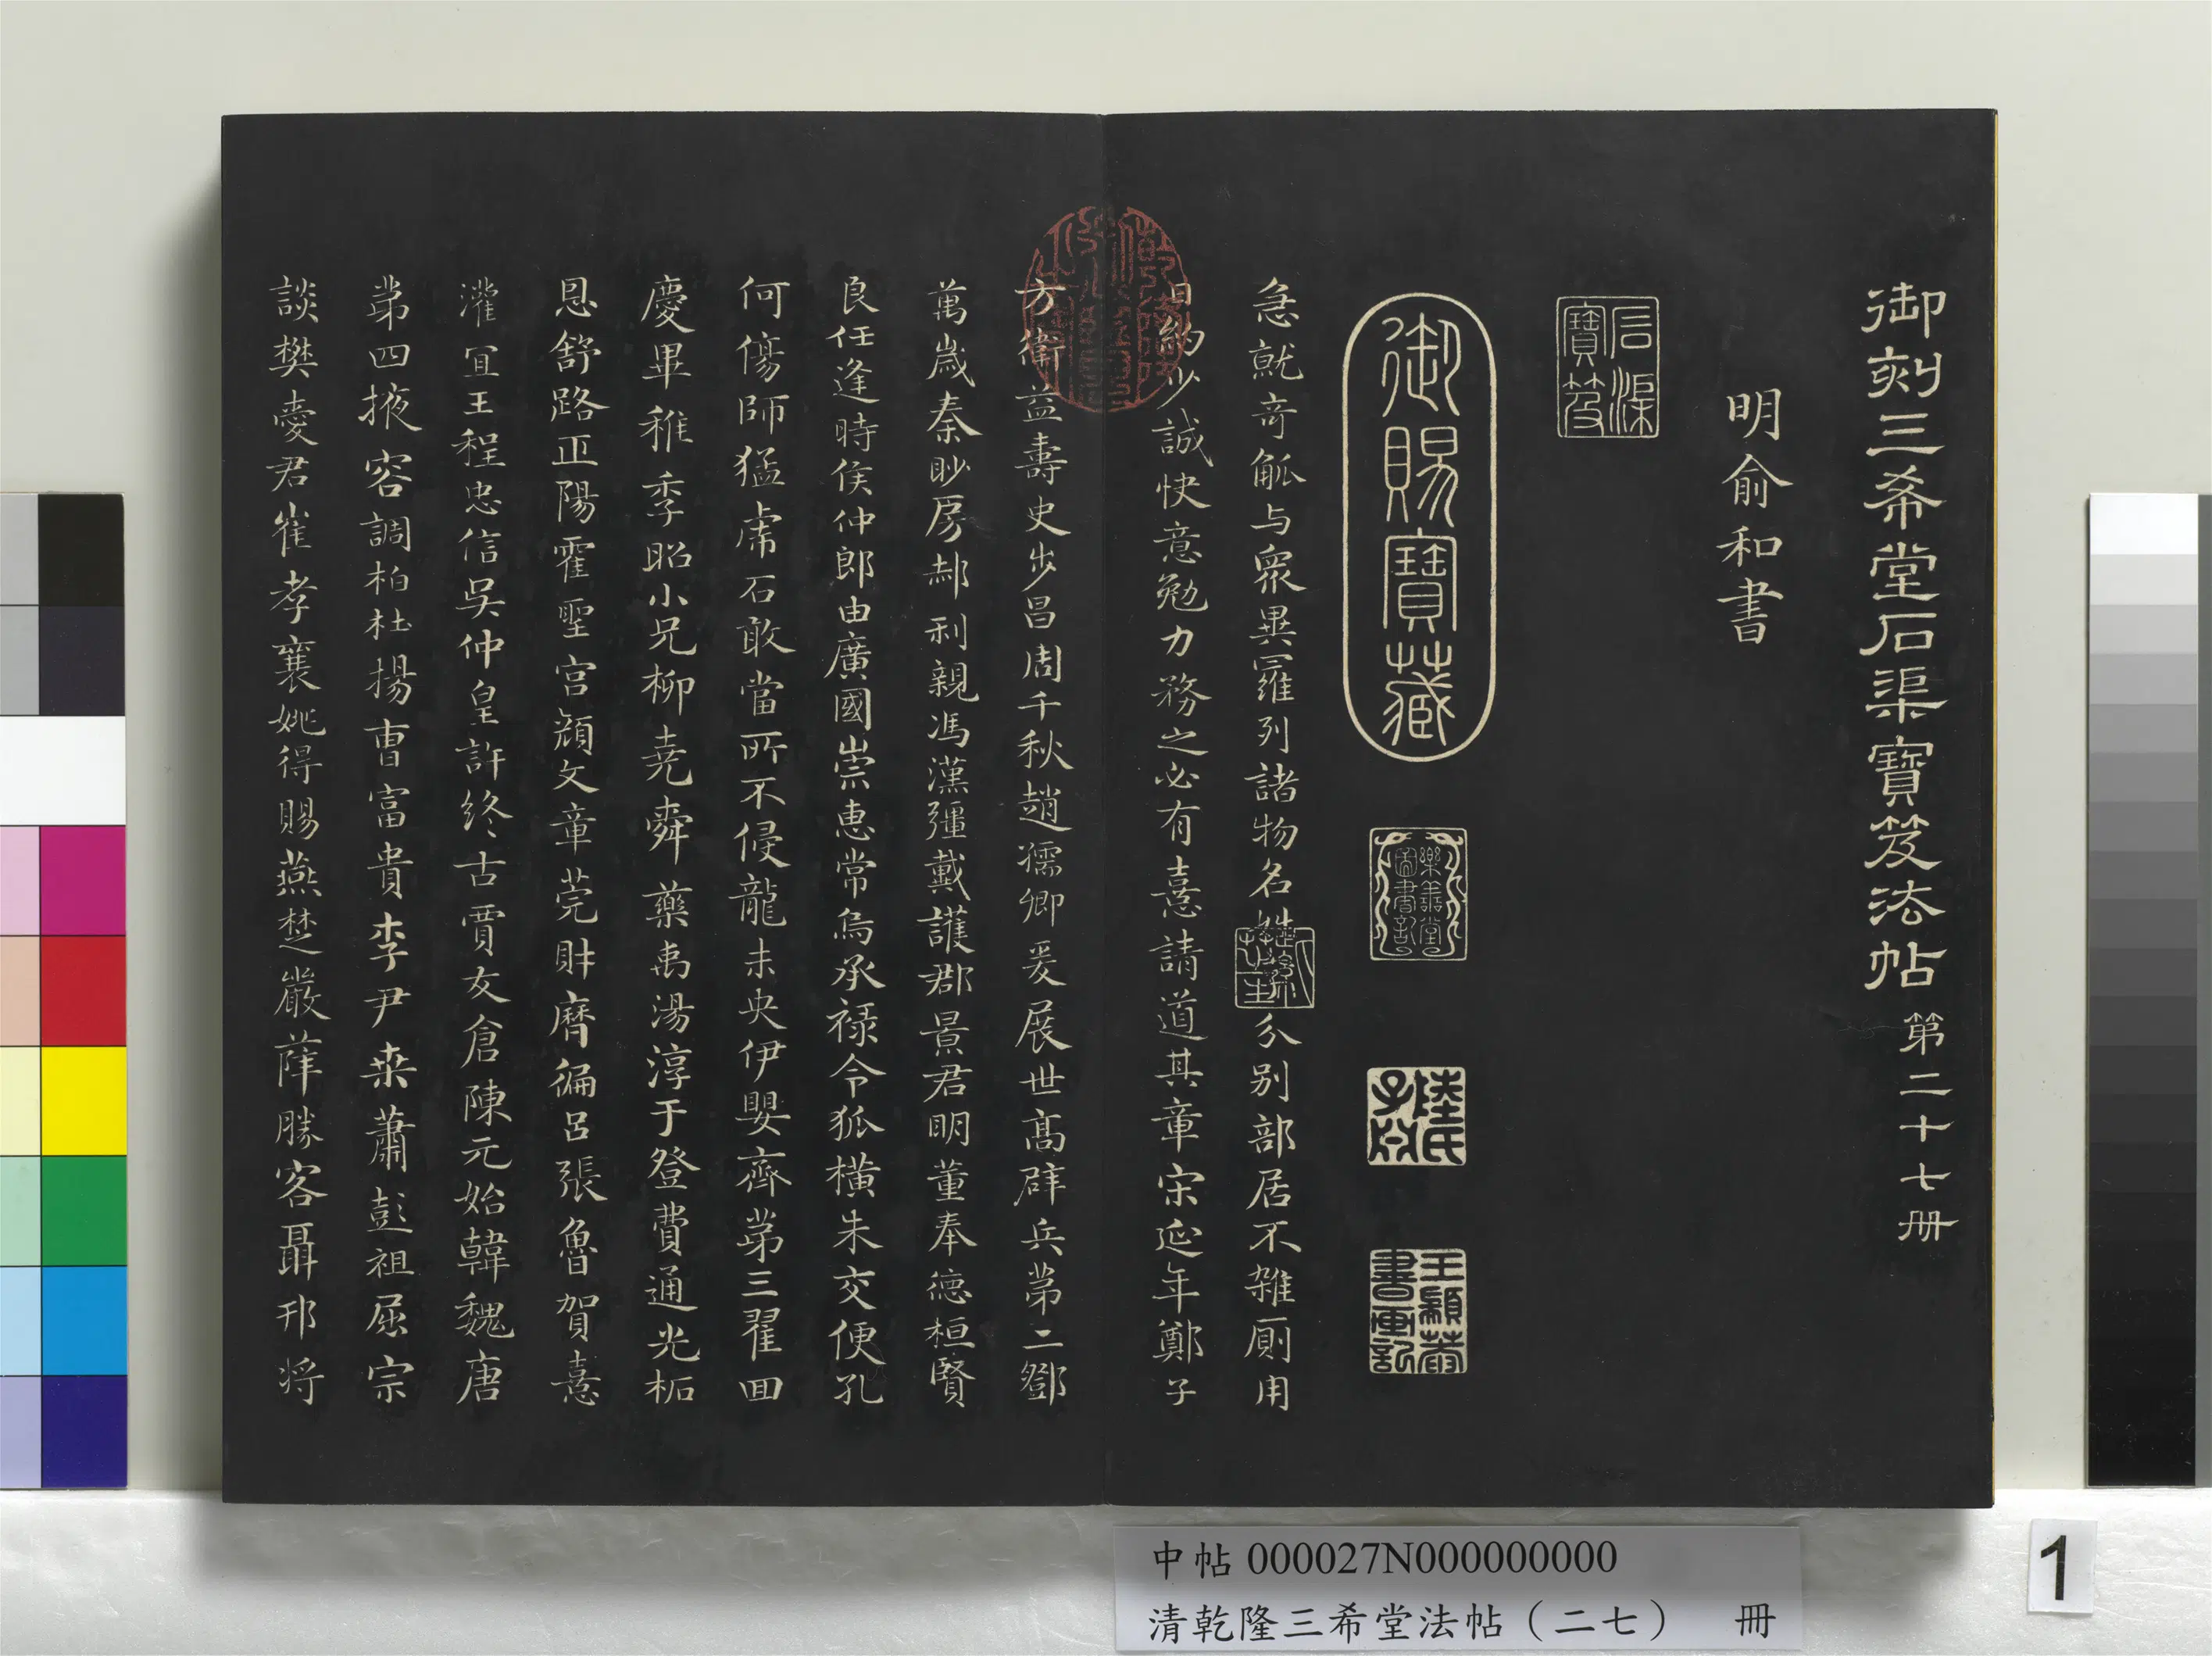 御刻三希堂石渠寶笈法帖 第二十七冊
明俞和書
石渠寶笈
御賜寶藏
樂善堂圖書記
陸氏子原
急就奇觚与衆異羅列諸物名姓分別部居不雜廁用
日約少誠快意勉力務之必有憙請道其章宋延年鄭子
方衛益壽史步昌周千秋趙孺卿爰展世高辟兵苐二鄧
萬歲秦眇房郝利親馮漢彊戴護郡景君明董奉德桓賢
良任逢時侯仲郎由廣國崇惠常烏承祿令狐橫朱交便孔
何傷師猛虎石敢當所不侵龍未央伊嬰齊苐三翟回
慶畢稚季昭小兄柳堯舜藥禹湯淳于登費通光柘
恩舒路正陽霍聖宮顏文章莞財曆偏呂張魯賀憙
灌宜王程忠信吳仲皇許終古賈友倉陳元始韓魏唐
苐四掖容調柏杜揚曹富貴李尹桒蕭彭祖屈宗
談樊愛君崔孝襄姚得賜燕楚嚴薛勝客聶邘将
中帖 000027N000000000
清乾隆三希堂法帖（二七） 冊
1